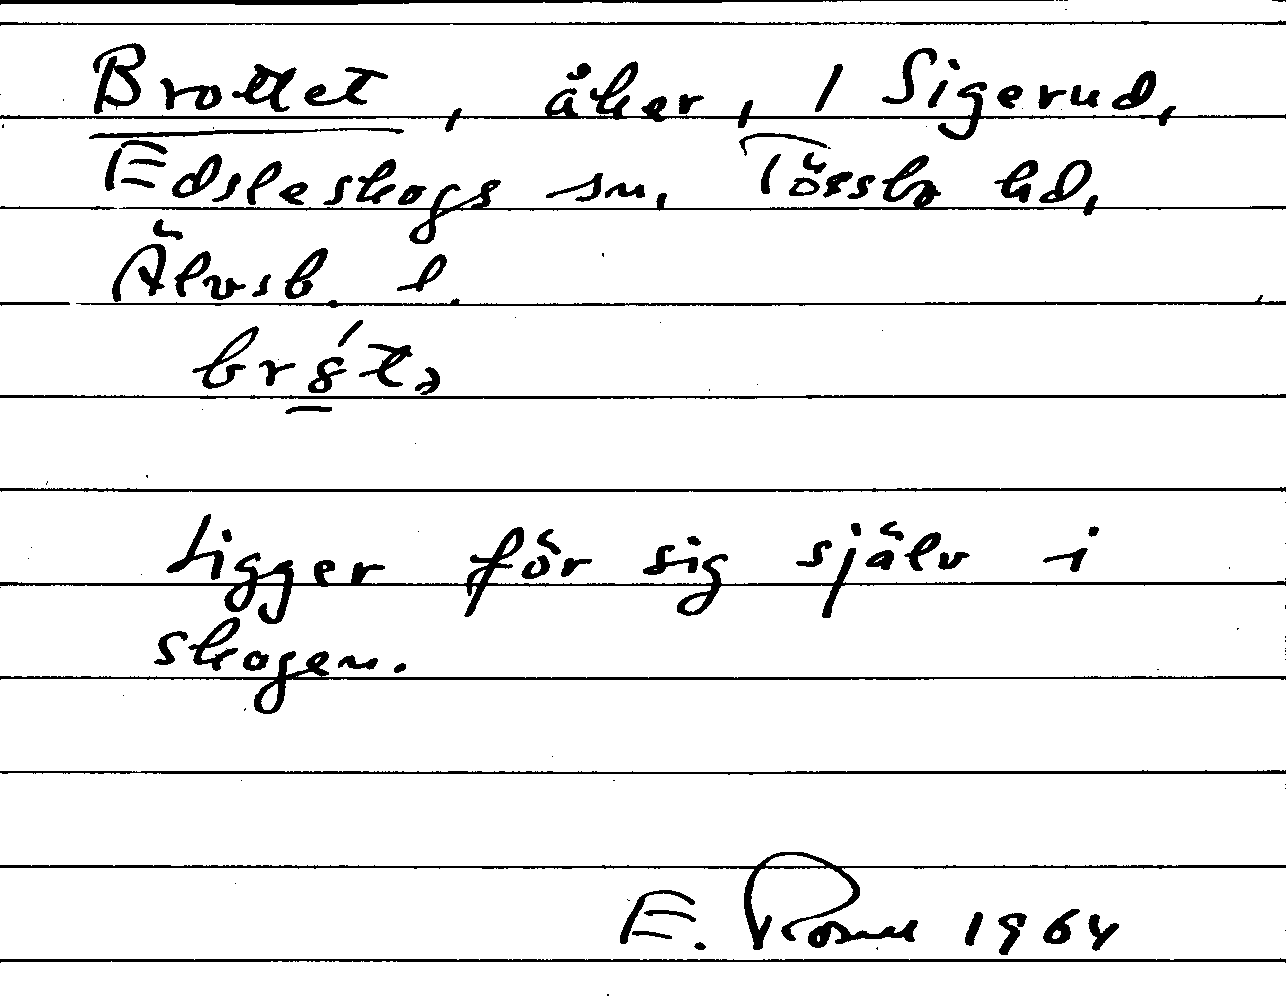 Brottet, åker, 1 Sigerud,
Edsleskogs sn, Tössbo hd,
Älvsb. l.
Ligger för sig själv i
skogen.
E. 1964